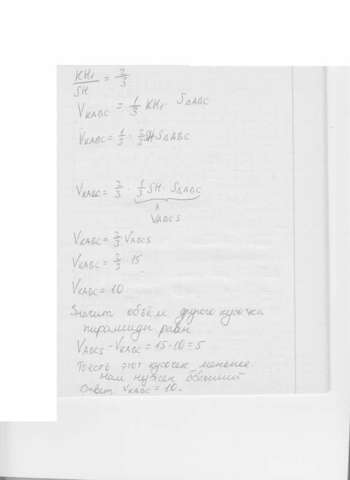 KH₁/SH = 2/3
V_KABC = 1/3 KH₁ · S△ABC
V_KABC = 1/3 · 2/3 SH · S△ABC
V_KABC = 2/3 · 1/3 SH · S△ABC
V_ABCS
V_KABC = 2/3 V_ABCS
V_KABC = 2/3 · 15
V_KABC = 10
Значит объём другого кусочка
пирамиды равен
V_ABCS - V_KABC = 15 - 10 = 5
Тоесть этот кусочек меньшее.
Нам нужен больший
Ответ V_KABC = 10.